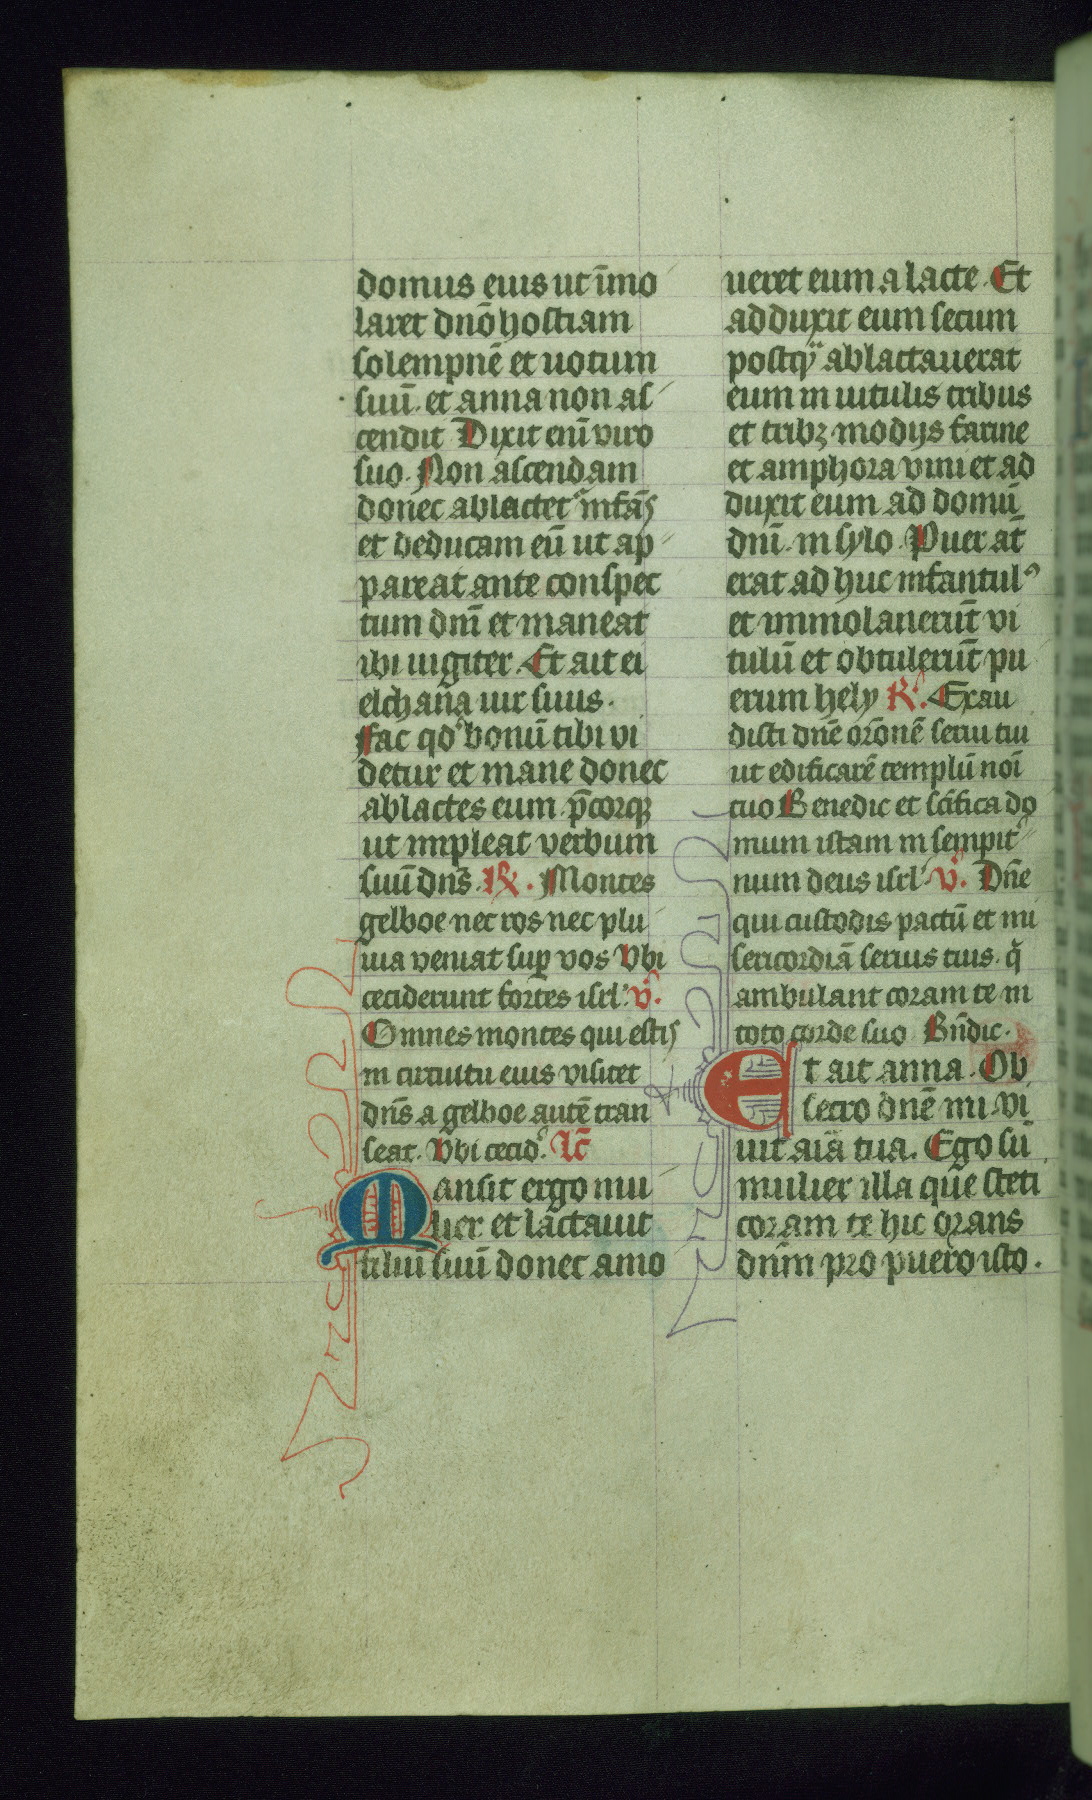 domus eius ut īmo
laret dnō hostiam
solempnē et uotum
suū. et anna non as
cendit Dixit enī viro
suo. Non ascendam
donec ablactet᷑ infās
et deducam eū ut ap
pareat ante conspec
tum dnī et maneat
ibi iugiter. Et ait ei
elchana uir suus.
Fac qd̕ bonū tibi vi
detur et mane donec
ablactes eum. p̄corqꝫ
ut impleat verbum
suū dns̄. ℟. Montes
gelboe nec ros nec plu
uia veniat suꝑ vos Vbi
ceciderunt fortes isrl̕. v̕.
Omnes montes qui estis
in circuitu eius visitet
dns̄ a gelboe autē tran
seat. Vbi cecid̕. Lc̄
Mansit ergo mu
lier et lactauit
filiū suū donec amo
ueret eum a lacte. Et
adduxit eum secum
postqᵃ ablactauerat
eum in uitulis tribus
et tribꝫ modijs farine
et amphora vini et ad
duxit eum ad domū
dnī. in sylo. Puer at̄
erat ad huc infantulꝰ
et immolauerūt vi
tulū et obtulerūt pu
erum hely ℟. Exau
disti dnē orōnē serui tui
ut edificarē templū noī
tuo Benedic et sc̄ifica do
mum istam in sempit᷑
num deus isrl̕ v̕. Dn̄e
qui custodis pactū et mi
sericordiā seruis tuis. q̄
ambulant coram te in
toto corde suo Bn̄dic.
Et ait anna. Ob
secro dnē mi vi
uit aīa tua. Ego sū
mulier illa que steti
coram te hic orans
dnm̄ pro puero isto.